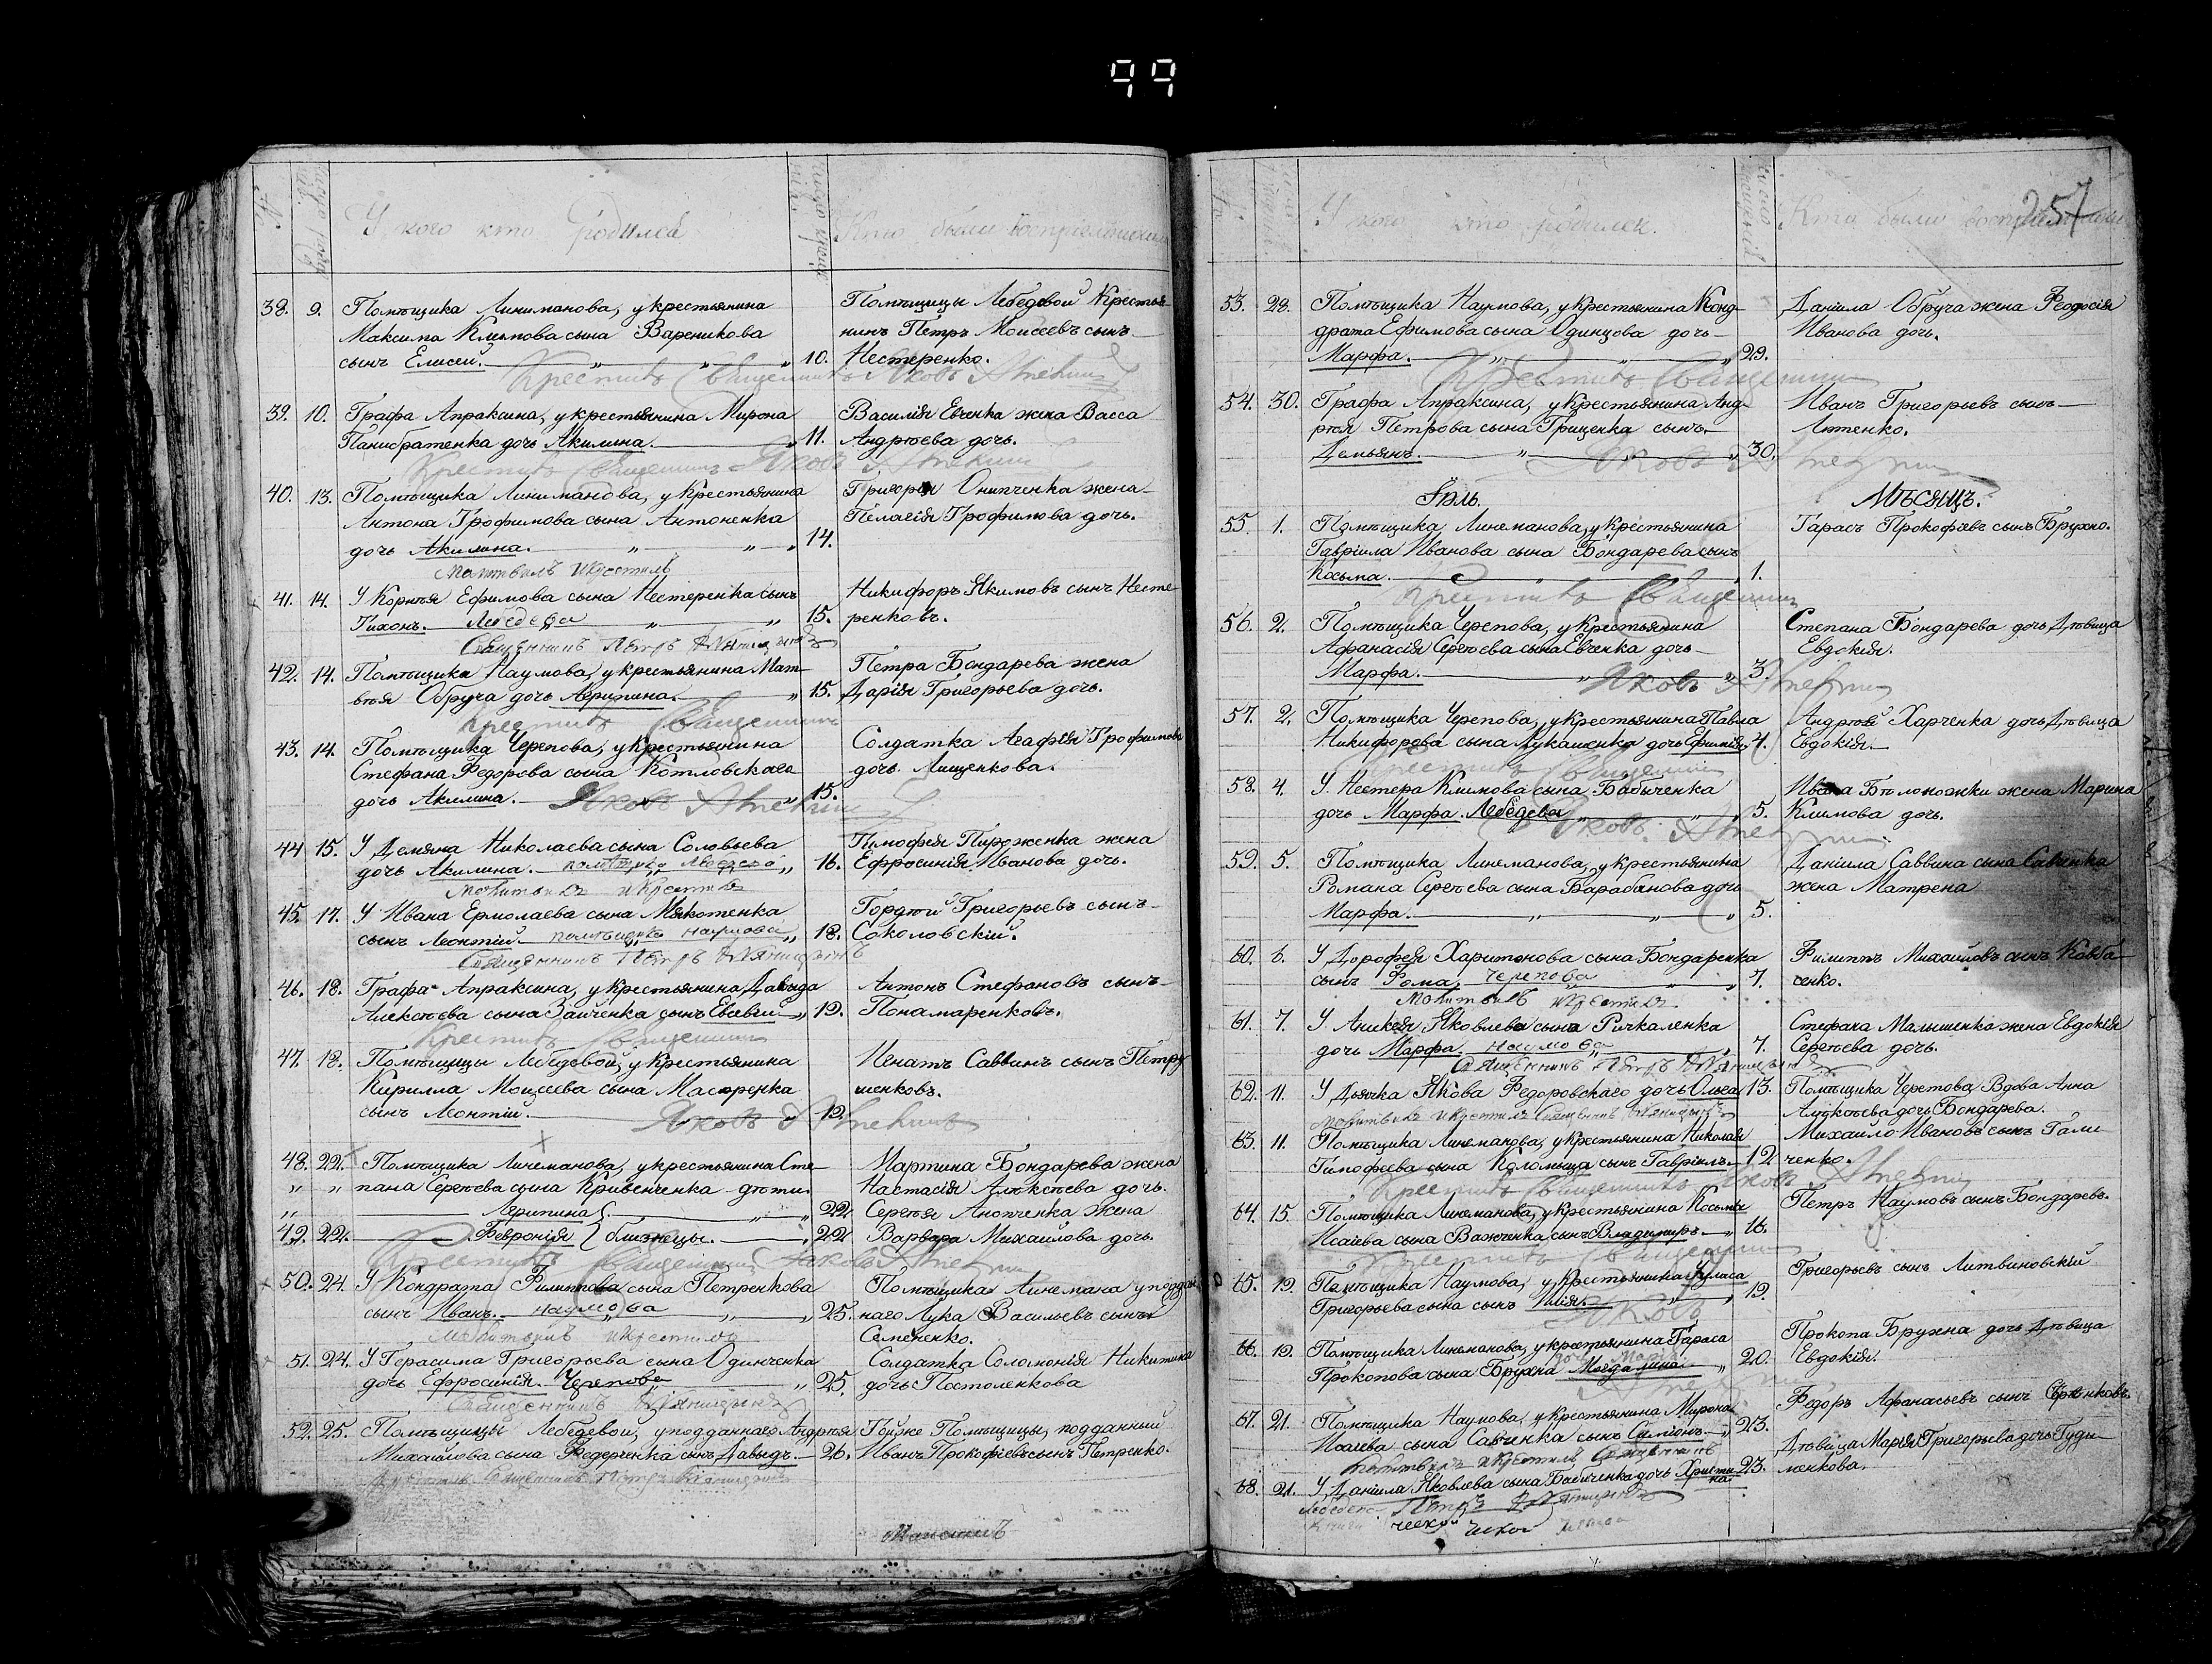 99
257
У кого кто родился
Кто были восприемниками
38. 9. Помѣщика Линиманова, у крестьянина
Максима Климова сына Вареникова
сынъ Елисей. 10.
Помѣщицы Лебедовой Крестья-
нинъ Петръ Моисеевъ сынъ
Нестеренко.
Крестилъ Священникъ Яковъ
39. 10. Графа Апраксина, у крестьянина Мирона
Панибратенка дочь Акилина. 11.
Василія Евченка жена Васса
Андрѣева дочь.
Крестилъ Священникъ Яковъ
40. 13. Помѣщика Линиманова, у Крестьянина
Антона Трофимова сына Антоненка
дочь Акилина. 14.
Григорія Онипченка жена
Пелагія Трофимова дочь.
Молитвилъ и крестилъ
41. 14. У Корнѣя Ефимова сына Нестеренка сынъ
Тихонъ. Лебедева 15.
Никифоръ Якимовъ сынъ Несте-
ренковъ.
Священникъ Петръ
42. 14. Помѣщика Наумова, у крестьянина Мат-
вѣя Обруча дочь Агрипина. 15.
Петра Бондарева жена
Дарія Григорьева дочь.
Крестилъ Священникъ
43. 14. Помѣщика Черепова, у Крестьянина
Стефана Федорова сына Котловскаго
дочь Акилина. 15.
Солдатка Агафія Трофимова
дочь Лищенкова.
Яковъ
44 15. У Демяна Николаева сына Соловьева
дочь Акилина. 16.
Тимофея Пироженка жена
Ефросинія Иванова дочь.
Молитвилъ и крестилъ
45. 17. У Ивана Ермолаева сына Мякотенка
сынъ Леонтій. помѣщика Наумова 18.
Гордѣй Григорьевъ сынъ
Соколовскій.
Священникъ Петръ
46. 18. Графа Апраксина, у крестьянина Давыда
Алексѣева сына Зайченка сынъ Евсевій 19.
Антонъ Стефановъ сынъ
Понамаренковъ.
Крестилъ Священникъ
47. 18. Помѣщицы Лебедовой, у Крестьянина
Кирилла Моисеева сына
сынъ Леонтій. 19.
Игнатъ Саввинъ сынъ Петру-
шенковъ.
Яковъ
48. 22. Помѣщика Линеманова, у крестьянина Сте-
пана Сергѣева сына Кривенченка дѣти
Агрипина 22
Мартина Бондарева жена
Настасія Алексѣева дочь.
Сергѣя Анопченка жена
49. 22. Февронія } близнецы. 22
Варвара Михайлова дочь.
Крестилъ Священникъ Яковъ
50. 24. У Кондрата Филиппова сына Петренкова
сынъ Иванъ. Наумова 25.
Помѣщика Линемана у поддан-
наго Лука Васильевъ сынъ
Семененко.
Молитвилъ и крестилъ
51. 24. У Герасима Григорьева сына Одинченка
дочь Ефросинія. Черепова 25.
Солдатка Соломонія Никитина
дочь Постоленкова
Священникъ
52. 25. Помѣщицы Лебедевой, у подданаго Андрѣя
Михайлова сына Федерченка сынъ Давыдъ. 26.
Тойже Помѣщицы, подданный
Иванъ Прокофіевъ сынъ Петренко.
У кого кто родился.
Кто были
53. 28. Помѣщика Наумова, у Крестьянина Конд-
драта Ефимова сына Одинцова дочь
Марфа. 29.
Даніила Обруча жена Феодосія
Иванова дочь.
Крестилъ Священникъ
54. 30. Графа Апраксина, у Крестьянина Анд-
рѣя Петрова сына Гриценка сынъ
Демьянъ. 30.
Иванъ Григорьевъ сынъ
Лютенко.
Яковъ
Іюль. Мѣсяцъ.
55 1. Помѣщика Линеманова, у Крестьянина
Гавріила Иванова сына Бондарева сынъ
Косьма. 1.
Тарасъ Прокофіевъ сынъ Брухно.
Крестилъ Священникъ
56. 2. Помѣщика Черепова, у Крестьянина
Афанасія Сергѣева сына Евченка дочь
Марфа. 3.
Степана Бондарева дочь Дѣвица
Евдокія.
Яковъ
57. 2. Помѣщика Черепова, у Крестьянина Павла
Никифорова сына Лукашенка дочь Ефимія 4.
Андрѣя Харченка дочь Дѣвица
Евдокія.
Крестилъ Священникъ
58. 4. У Нестера Климова сына Бабыченка
дочь Марфа. Лебедева 5.
Ивана Бѣлоножки жена Марина
Климова дочь.
Яковъ
59. 5. Помѣщика Линеманова, у крестьянина
Романа Сергѣева сына Барабанова дочь
Марфа. 5.
Даніила Саввина сына Савенка
жена Матрена
60. 6. У Дорофея Харитонова сына Бондаренка
сынъ Фома. Черепова 7.
Филиппъ Михайловъ сынъ
сенко.
Молитвилъ и крестилъ
61. 7. У Аникея Яковлева сына Ричкаленка
дочь Марфа. Наумова 7.
Стефана Малышенко жена Евдокія
Сергѣева дочь.
Священникъ Петръ
62. 11. У Дьячка Якова Федоровскаго дочь Ольга 13.
Помѣщика Черепова Вдова Анна
Алексѣева дочь Бондарева.
Молитвилъ и крестилъ Священникъ
63. 11. Помѣщика Линеманова, у крестьянина Николая
Тимофеева сына Коломыца сынъ Гавріилъ. 12
Михайло Ивановъ сынъ Гали-
ченко.
Крестилъ Священникъ Яковъ
64. 15. Помѣщика Линеманова, у крестьянина Косьмы
Исаіева сына Важченка сынъ Владимиръ. 16.
Петръ Наумовъ сынъ Бондаревъ.
Крестилъ Священникъ
65. 19. Помѣщика Наумова, у Крестьянина
Григорьева сына сынъ Илія. 19.
Григорьевъ сынъ Литвиновскій
Яковъ
66. 19. Помѣщика Линеманова, у крестьянина Тараса
Прокопова сына Брухна Магдалина. 20.
Прокопа Брухна дочь Дѣвица
Евдокія.
67. 21. Помѣщика Наумова, у Крестьянина Мирона
Исаіева сына Савченка сынъ Симіонъ. 23.
Федоръ Афанасьевъ сынъ
Молитвилъ и крестилъ Священникъ
68. 21. У Даніила Яковлева сына Бабиченка дочь Христи-
на. 23.
Дѣвица Марія Григорьева дочь Гуди-
менкова.
Петръ